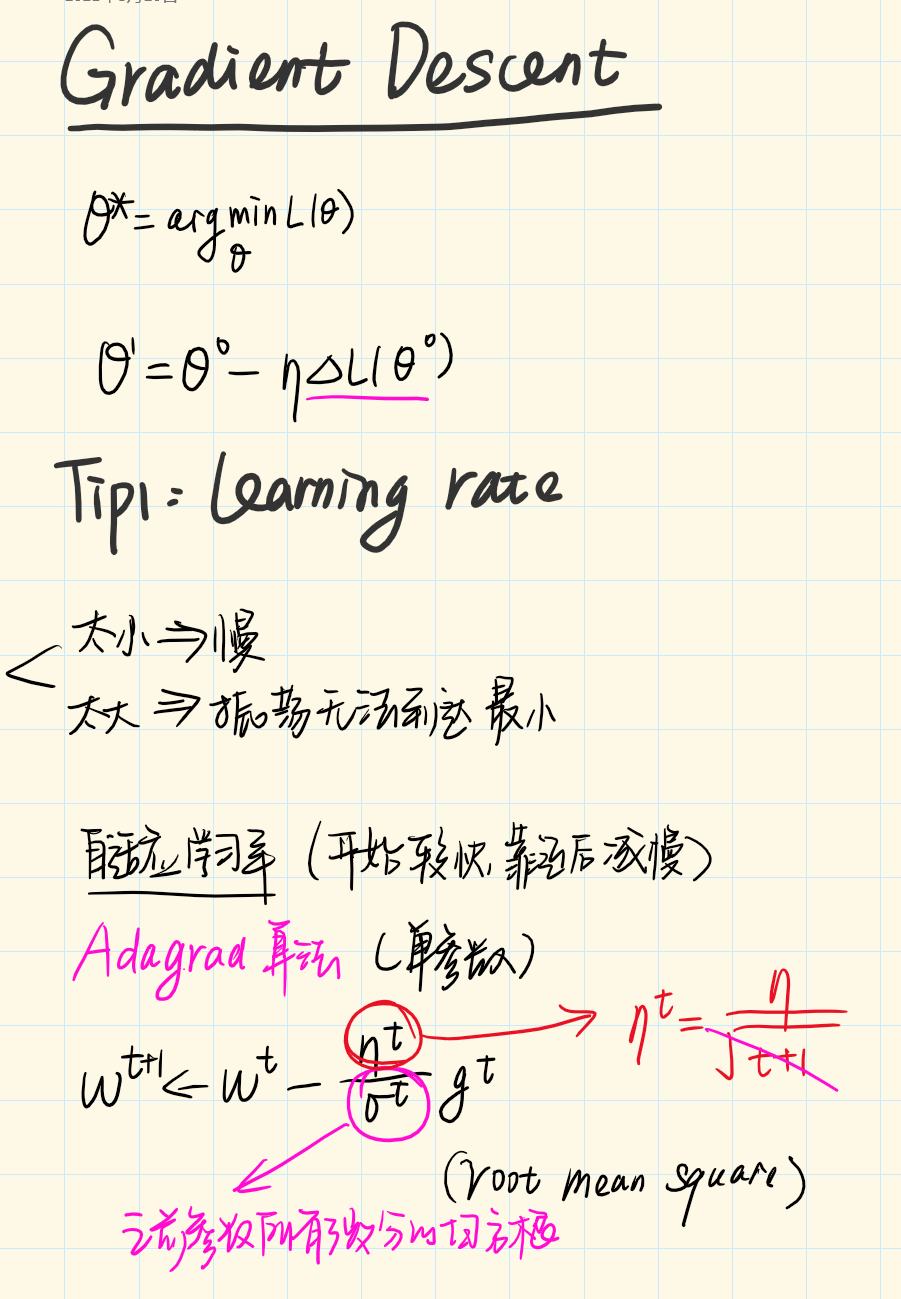 Gradient Descent
θ* = arg min L(θ)
θ
θ¹ = θ⁰ - η△L(θ⁰)
Tip1: Learning rate
太小 ⇒ 慢
太大 ⇒ 振荡无法到达最小
自适应学习率 (开始较快, 靠近后减慢)
Adagrad 算法 (单参数)
w^{t+1} ← w^t - η^t/σ^t g^t
η^t = η/√(t+1)
(root mean square)
参数所有微分的均方根